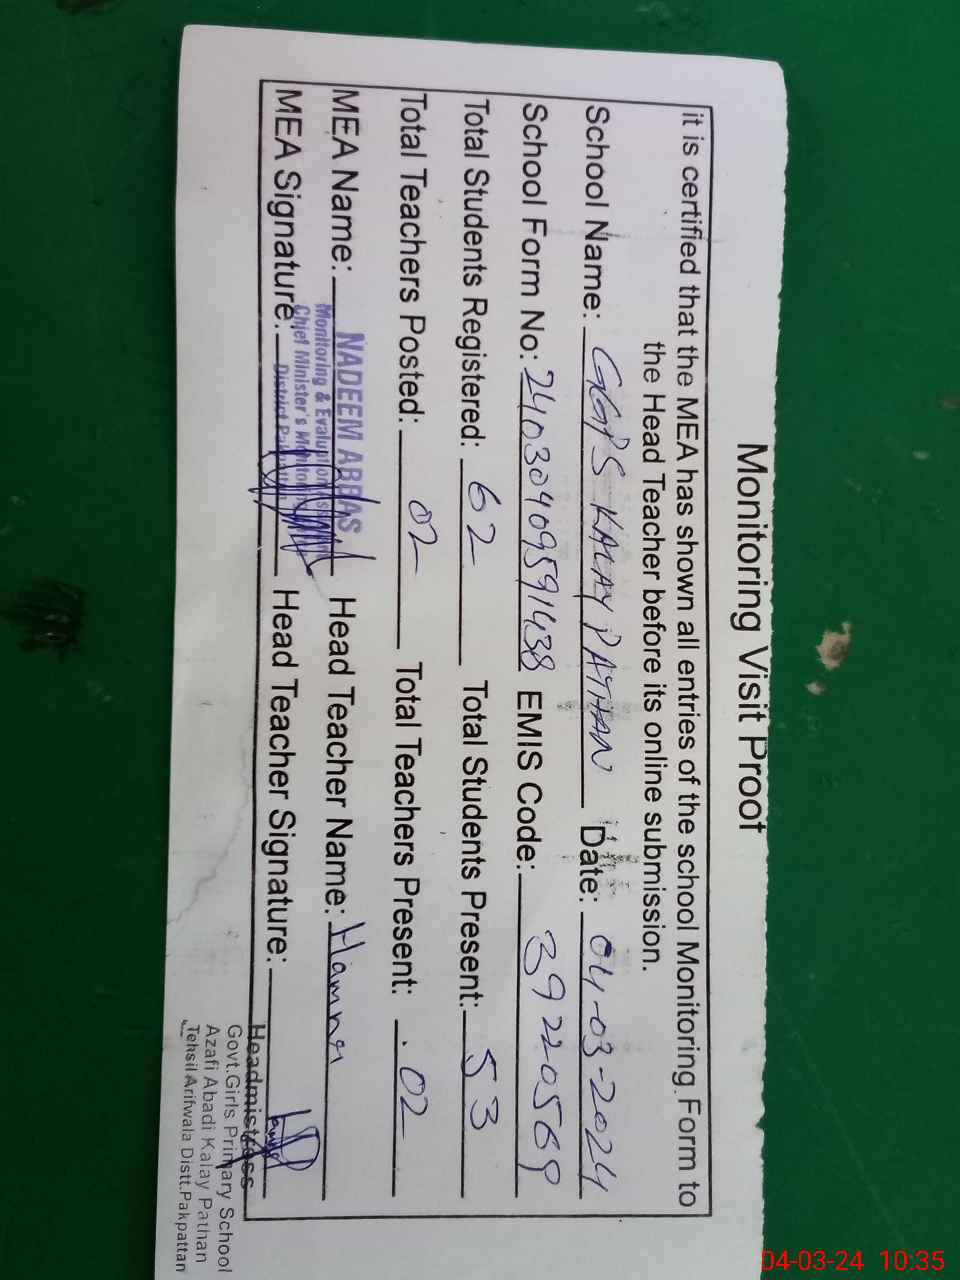 Monitoring Visit Proof
it is certified that the MEA has shown all entries of the school Monitoring Form to
the Head Teacher before its online submission.
School Name: GGPS KALAY PATHAN Date: 04-03-2024
School Form No: 24030409591438 EMIS Code: 39220569
Total Students Registered: 62 Total Students Present: 53
Total Teachers Posted: 02 Total Teachers Present: 02
MEA Name: NADEEM ABBAS Head Teacher Name: Hamna
Monitoring & Evaluation
Chief Minister's Monitoring
MEA Signature: District Head Teacher Signature:
Headmistress
Govt.Girls Primary School
Azafi Abadi Kalay Pathan
Tehsil Arifwala Distt.Pakpattan
04-03-24 10:35